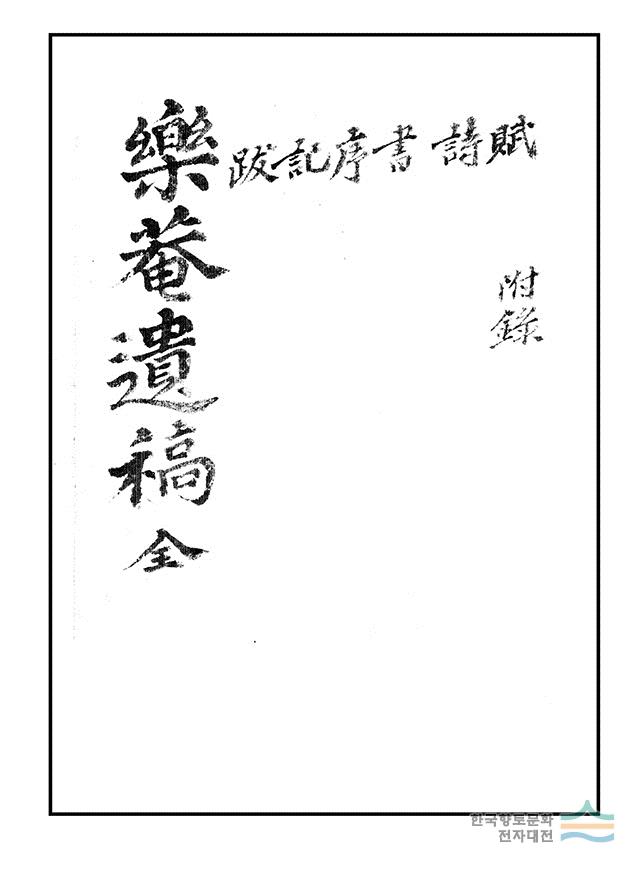 樂菴遺稿 全
賦詩書序記跋
附錄
한국향토문화
전자대전